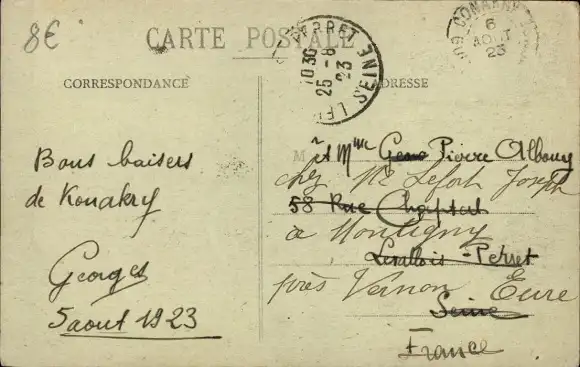 8€
CARTE POSTALE
CORRESPONDANCE
ADRESSE
PERRET SEINE
1030
25-8
23
CONAKRY
6
AOUT
23
Bons baisers
de Konakry
Georges
5 aout 1923
M et Mme Geo Pierre Albouy
chez Mr Lefort Joseph
58 Rue Chaptal
à Montigny
Levallois-Perret
près Vernon Eure
Seine
France